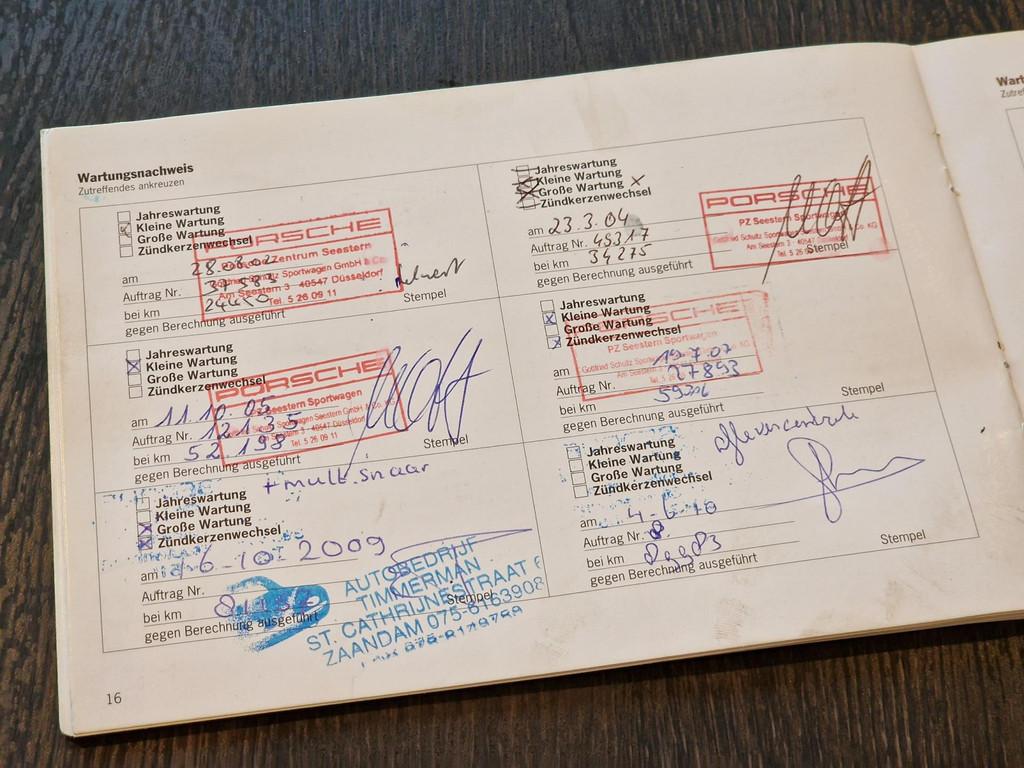 Wartungsnachweis
Zutreffendes ankreuzen
Jahreswartung
Kleine Wartung
Große Wartung
Zündkerzenwechsel
am 28.08.02
Auftrag Nr. 37583
bei km
gegen Berechnung ausgeführt
Stempel
PORSCHE
Zentrum Seestern
Sportwagen GmbH & Co
Am Seestern 3 · 40547 Düsseldorf
Tel. 5 26 09 11
Jahreswartung
Kleine Wartung
Große Wartung x
Zündkerzenwechsel
am 23.3.04
Auftrag Nr. 45317
bei km 34275
gegen Berechnung ausgeführt
Stempel
PORSCHE
PZ Seestern Sportwagen
Gottfried Schultz Sportwagen KG
Am Seestern 3 · 40547 Düsseldorf
Tel. 5 26 09 11
Jahreswartung
Kleine Wartung
Große Wartung
Zündkerzenwechsel
am 11.10.05
Auftrag Nr. 12135
bei km 52.198
gegen Berechnung ausgeführt
Stempel
PORSCHE
Seestern Sportwagen
Schultz Sportwagen Seestern GmbH & Co. KG
Am Seestern 3 · 40547 Düsseldorf
Tel. 5 26 09 11
Jahreswartung
Kleine Wartung
Große Wartung
Zündkerzenwechsel
am 19.7.07
Auftrag Nr. 27893
bei km
gegen Berechnung ausgeführt
Stempel
PORSCHE
PZ Seestern Sportwagen
+ mult.snaar
Jahreswartung
Kleine Wartung
Große Wartung
Zündkerzenwechsel
am 6-10-2009
Auftrag Nr.
bei km
gegen Berechnung ausgeführt
Stempel
AUTOBEDRIJF
TIMMERMAN
ST. CATHRIJNESTRAAT 6
ZAANDAM 075-6163908
Jahreswartung
Kleine Wartung
Große Wartung
Zündkerzenwechsel
am 4-6-10
Auftrag Nr.
bei km
gegen Berechnung ausgeführt
Stempel
16